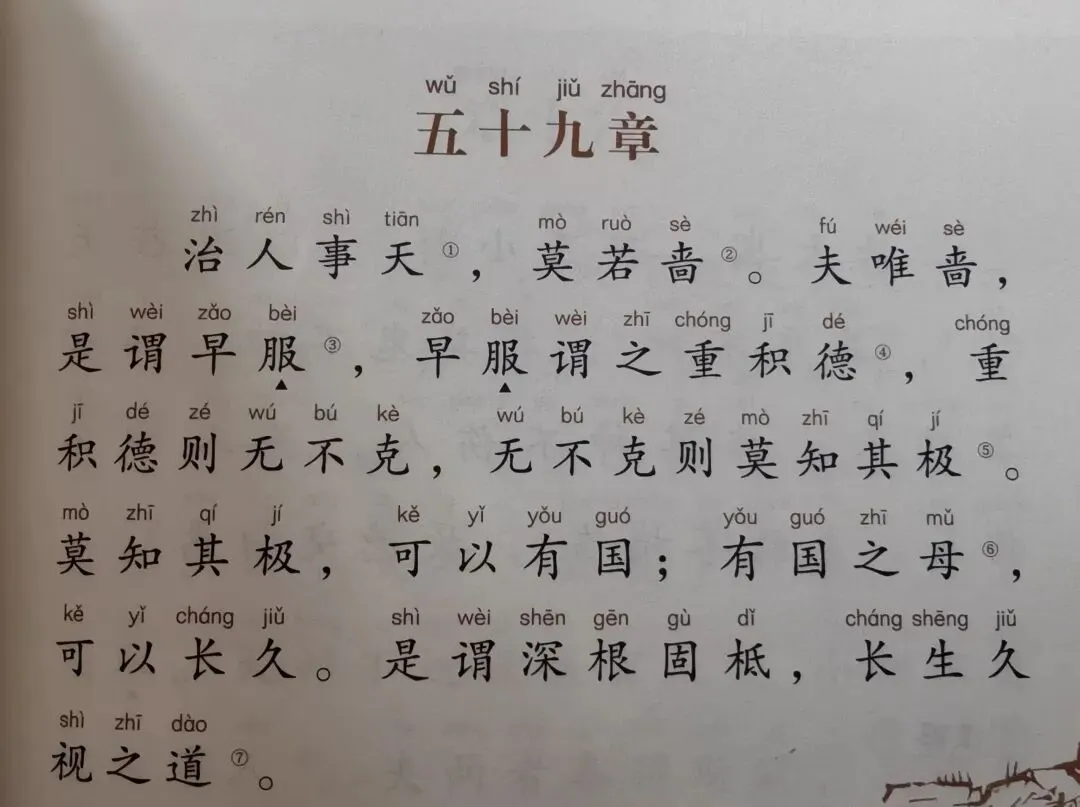 wǔ shí jiǔ zhāng
五十九章
zhì rén shì tiān mò ruò sè fú wéi sè
治人事天①，莫若啬②。夫唯啬，
shì wèi zǎo bèi zǎo bèi wèi zhī chóng jī dé chóng
是谓早服③，早服谓之重积德④，重
▲ ▲
jī dé zé wú bú kè wú bú kè zé mò zhī qí jí
积德则无不克，无不克则莫知其极⑤。
mò zhī qí jí kě yǐ yǒu guó yǒu guó zhī mǔ
莫知其极，可以有国；有国之母⑥，
kě yǐ cháng jiǔ shì wèi shēn gēn gù dǐ cháng shēng jiǔ
可以长久。是谓深根固柢，长生久
shì zhī dào
视之道⑦。